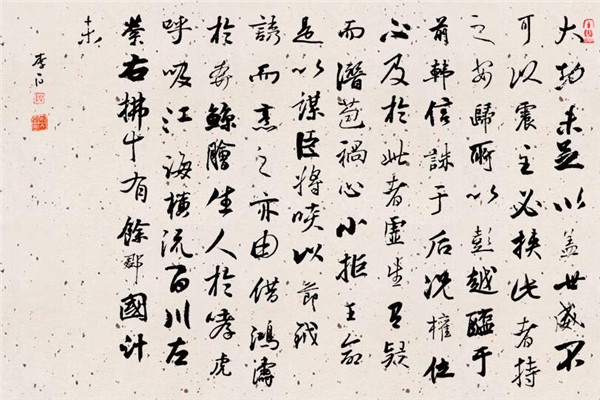 大功未足以蓋世威不
可以震主必挾此者持
之安歸所以彭越醢于
前韓信誅于后況權位
不及於此者虛生危疑
而潛苞禍心小拒王命
是以謀臣將啖以節鉞
誘而烹之亦由借鴻濤
於奔鯨鱠生人於哮虎
呼吸江海橫流百川左
縈右拂十有餘郡國計
未
李白